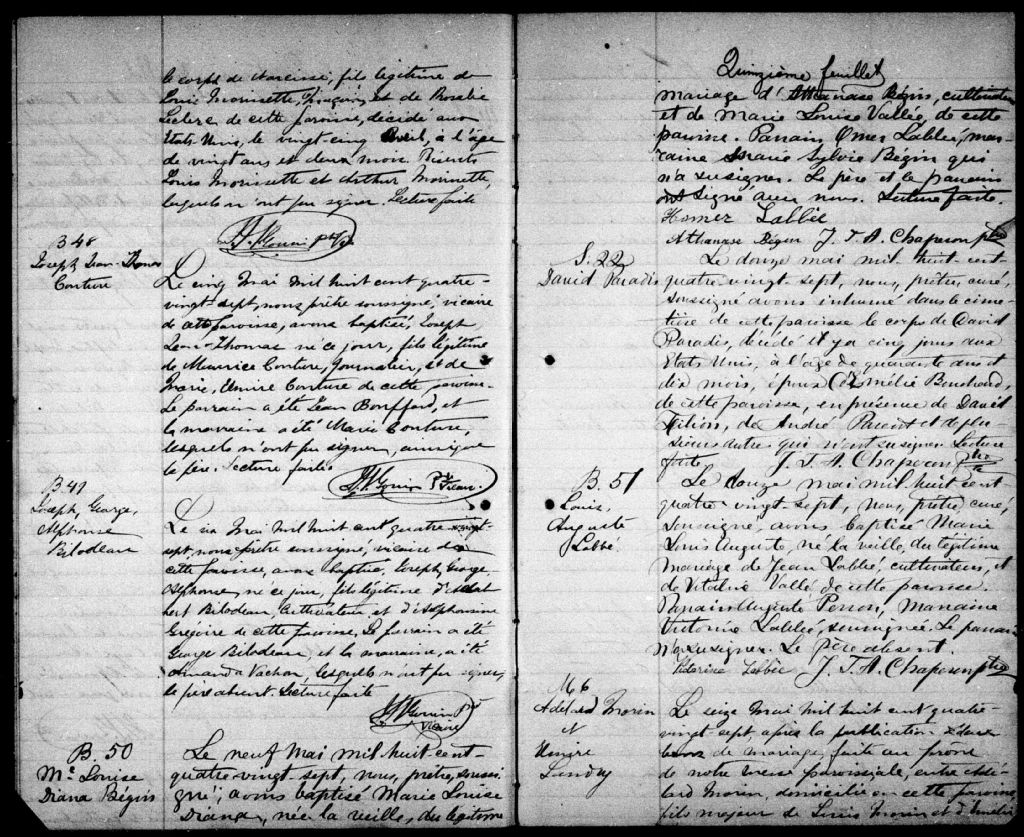 le corps de Narcisse, fils légitime de
Louis Morissette, et de Rosalie
Leclerc de cette paroisse, décédé aux
Etats Unis, le vingt-cinq Avril, à l'âge
de vingt ans et deux mois. Présents
Louis Morissette et Arthur Morissette,
lesquels n'ont pu signer. Lecture faite
B 48
Joseph Jean-Thomas
Couture
Le cinq Mai mil huit cent quatre-
vingt sept, nous prêtre soussigné, vicaire
de cette paroisse, avons baptisé, Joseph
Jean-Thomas né ce jour, fils légitime
de Maurice Couture, Journalier, et de
Marie, Couture de cette paroisse.
Le parrain a été Jean Boufford, et
la marraine a été Marie Couture,
lesquels n'ont pu signer, ainsi que
le père. Lecture faite.
B 49
Joseph, George,
Alphonse
Bilodeau
Le six Mai mil huit cent quatre-vingt
sept, nous prêtre soussigné, vicaire de
cette paroisse, avons baptisé, Joseph, George
Alphonse, né ce jour, fils légitime
Bilodeau, Cultivateur, et d'Alphonsine
Grégoire de cette paroisse. Le parrain a été
George Bilodeau, et la marraine, a été
Vachon, lesquels n'ont pu signer,
le père absent. Lecture faite
Vicaire
B. 50
Me Louise
Diana Bégin
Le neuf Mai mil huit cent
quatre-vingt sept, nous, prêtre, soussi-
gné, avons baptisé Marie Louise
Diana, née la veille, du légitime
Quinzième feuillet
mariage d'Athanase Bégin, cultivateur
et de Marie Louise Vallée, de cette
paroisse. Parrain Omer Labbé, mar-
raine Marie Sylvie Bégin qui
n'a su signer. Le père et le parrain
ont signé avec nous. Lecture faite.
Homer Labbée
Athanase Bégin J. T. A. Chaperon ptre
S. 22
David Paradis
Le douze mai mil huit cent
quatre-vingt sept, nous, prêtre, curé,
soussigné avons inhumé dans le cime-
tière de cette paroisse le corps de David
Paradis, décédé il y a cinq jours aux
Etats Unis, à l'âge de quarante ans et
dix mois, époux Bouchard,
de cette paroisse, en présence de David
de André Parent et de plu-
sieurs autres qui n'ont su signer. Lecture
faite J. T. A. Chaperon ptre
B. 51
Louis,
Auguste
Labbé.
Le douze mai mil huit cent
quatre-vingt sept, nous, prêtre curé,
soussigné, avons baptisé Marie
Louis Auguste, né la veille, du légitime
mariage de Jean Labbé, cultivateur, et
de Vitaline Vallée de cette paroisse.
Parrain Auguste Perron, Marraine
Victorine Labbée, soussignée. Le parrain
n'a su signer. Le Père absent.
Labbée J. T. A. Chaperon ptre
M 6
Adélard Morin
et
Landry
Le seize Mai mil huit cent quatre-
vingt sept, après la publication
bans de mariage, faite au prône
de notre messe paroissiale, entre Adé-
lard Morin, domicilié en cette paroisse,
fils majeur de Louis Morin et